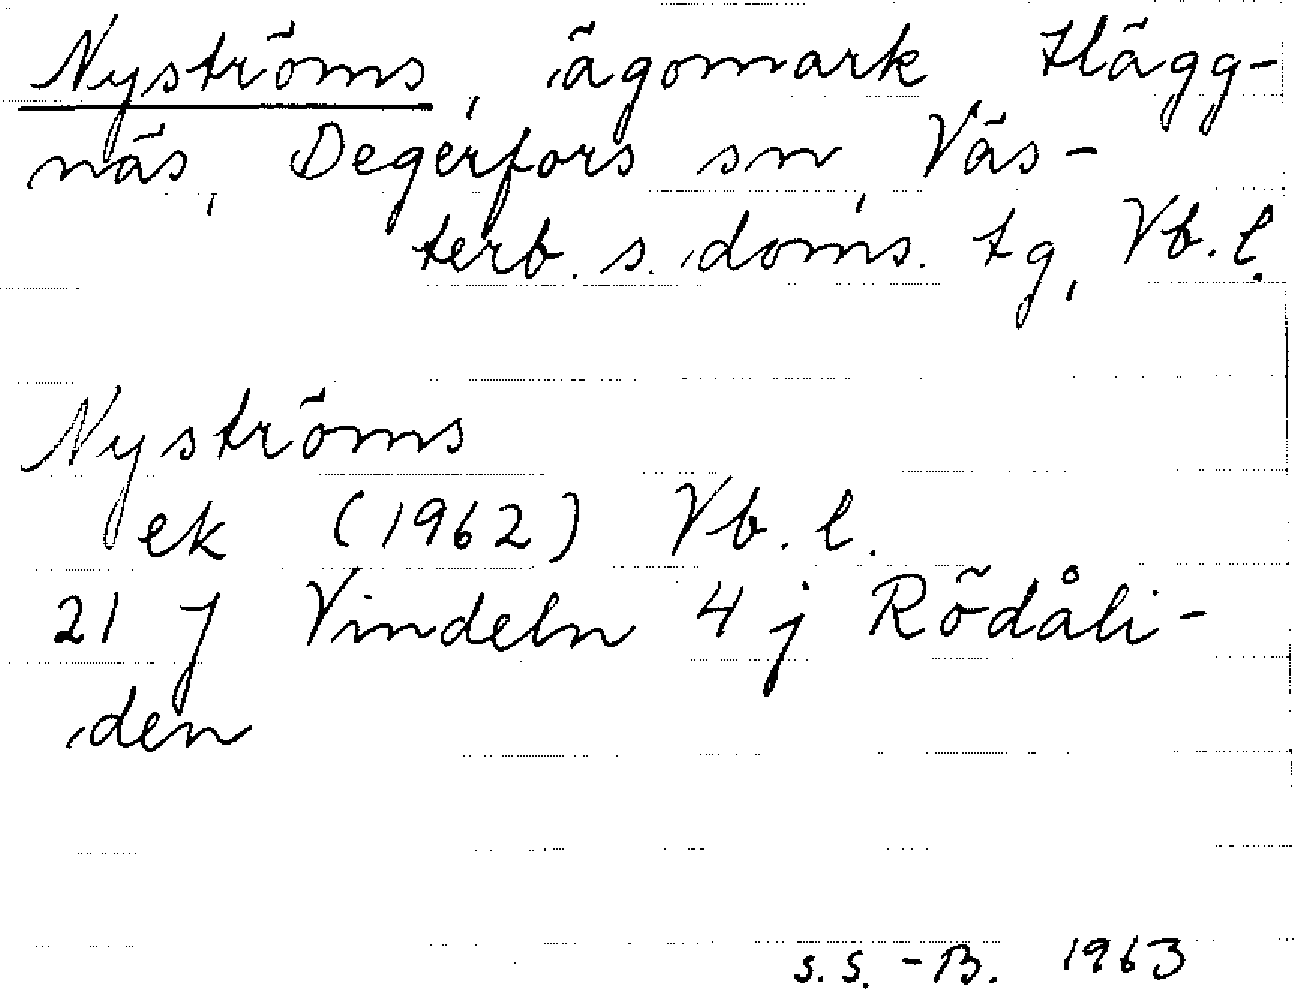 Nyströms, ägomark Hägg-
näs, Degerfors sn, Väs-
terb. s. doms. tg, Vb. l.
Nyströms
ek (1962) Vb. l.
21 J Vindeln 4 j Rödåli-
den
S. S. -B. 1963